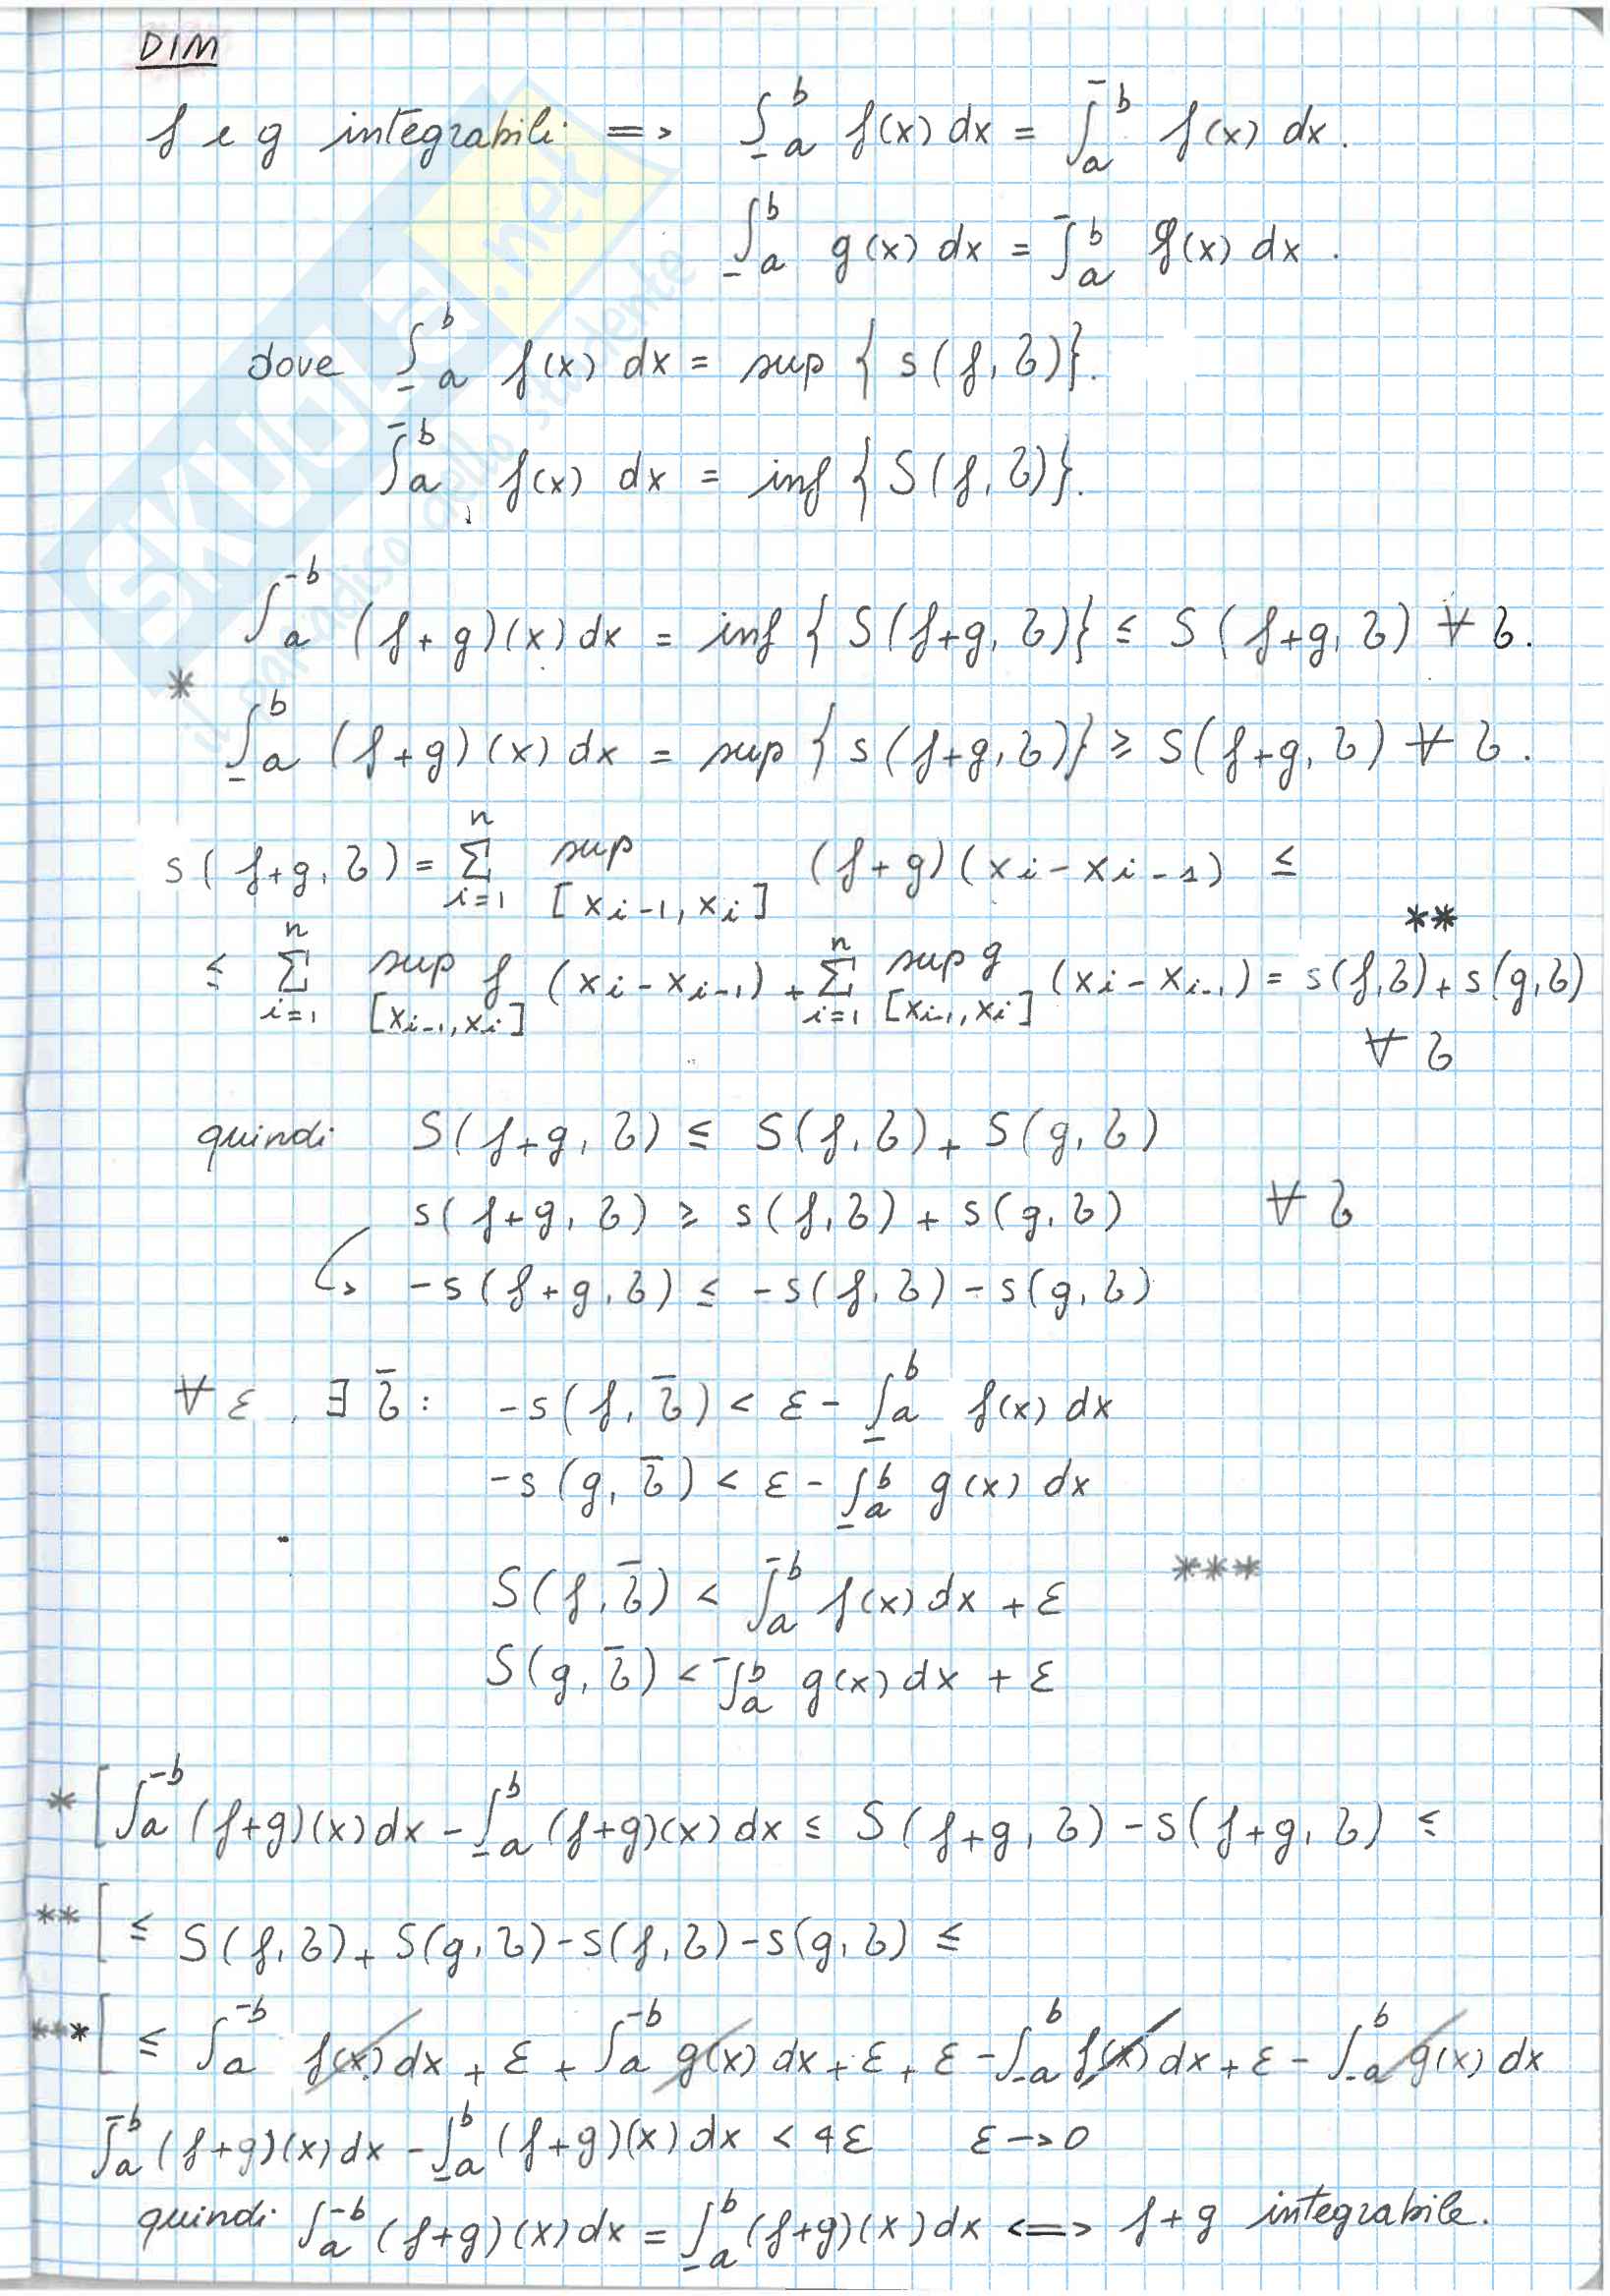 DIM
f e g integrabili => ∫_a^b f(x) dx = ∫̅_a^b f(x) dx.
∫_a^b g(x) dx = ∫̅_a^b g(x) dx.
dove ∫_a^b f(x) dx = sup { s(f, τ)}.
∫̅_a^b f(x) dx = inf { S(f, τ)}.
∫̅_a^b (f+g)(x) dx = inf { S(f+g, τ)} ≤ S(f+g, τ) ∀ τ.
*
∫_a^b (f+g)(x) dx = sup { s(f+g, τ)} ≥ s(f+g, τ) ∀ τ.
s(f+g, τ) = Σ_{i=1}^n sup_{[x_{i-1}, x_i]} (f+g)(x_i - x_{i-1}) ≤
**
≤ Σ_{i=1}^n sup_{[x_{i-1}, x_i]} f (x_i - x_{i-1}) + Σ_{i=1}^n sup_{[x_{i-1}, x_i]} g (x_i - x_{i-1}) = s(f, τ) + s(g, τ)
∀ τ
quindi S(f+g, τ) ≤ S(f, τ) + S(g, τ)
s(f+g, τ) ≥ s(f, τ) + s(g, τ) ∀ τ
↳ -s(f+g, τ) ≤ -s(f, τ) - s(g, τ)
∀ ε, ∃ τ̅ : -s(f, τ̅) < ε - ∫_a^b f(x) dx
-s(g, τ̅) < ε - ∫_a^b g(x) dx
***
S(f, τ̅) < ∫̅_a^b f(x) dx + ε
S(g, τ̅) < ∫̅_a^b g(x) dx + ε
* [ ∫̅_a^b (f+g)(x) dx - ∫_a^b (f+g)(x) dx ≤ S(f+g, τ) - s(f+g, τ) ≤
** [ ≤ S(f, τ) + S(g, τ) - s(f, τ) - s(g, τ) ≤
*** [ ≤ ∫̅_a^b f(x) dx + ε + ∫̅_a^b g(x) dx + ε + ε - ∫_a^b f(x) dx + ε - ∫_a^b g(x) dx
∫̅_a^b (f+g)(x) dx - ∫_a^b (f+g)(x) dx < 4ε ε → 0
quindi ∫̅_a^b (f+g)(x) dx = ∫_a^b (f+g)(x) dx <=> f+g integrabile.
SKUOLA.net
il paradiso dello studente